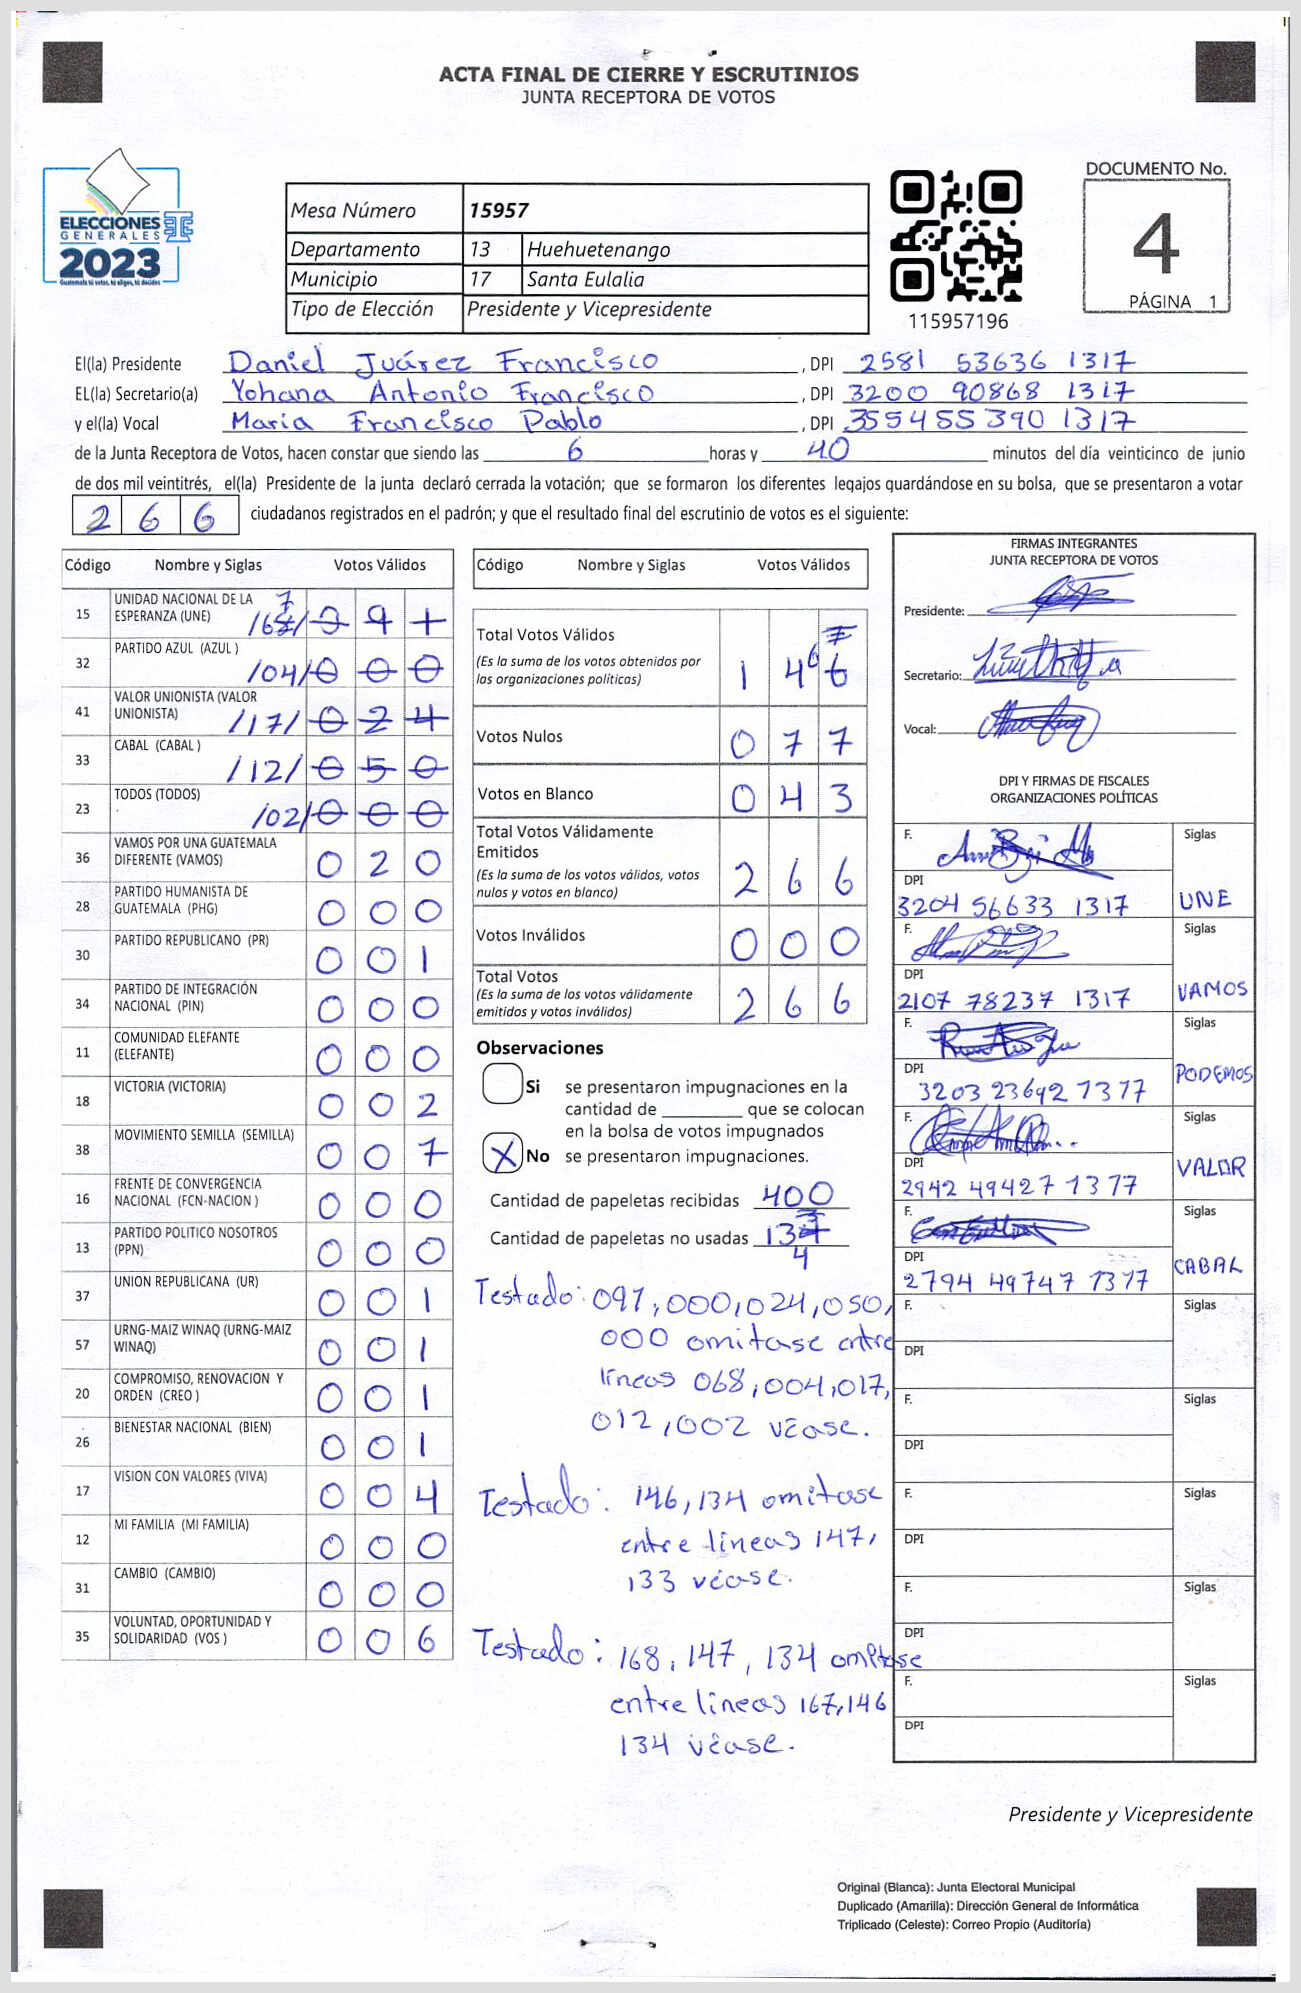 ACTA FINAL DE CIERRE Y ESCRUTINIOS
JUNTA RECEPTORA DE VOTOS
ELECCIONES
GENERALES
2023
Guatemala tú votas, tú eliges, tú decides
TSE
Mesa Número 15957
Departamento 13 Huehuetenango
Municipio 17 Santa Eulalia
Tipo de Elección Presidente y Vicepresidente
115957196
DOCUMENTO No.
4
PÁGINA 1
El(la) Presidente Daniel Juárez Francisco , DPI 2581 53636 1317
EL(la) Secretario(a) Yohana Antonio Francisco , DPI 3200 90868 1317
y el(la) Vocal Maria Francisco Pablo , DPI 3554 55390 1317
de la Junta Receptora de Votos, hacen constar que siendo las 6 horas y 40 minutos del día veinticinco de junio
de dos mil veintitrés, el(la) Presidente de la junta declaró cerrada la votación; que se formaron los diferentes legajos quardándose en su bolsa, que se presentaron a votar
266 ciudadanos registrados en el padrón; y que el resultado final del escrutinio de votos es el siguiente:
Código Nombre y Siglas Votos Válidos
15 UNIDAD NACIONAL DE LA ESPERANZA (UNE) /68/ 7 0 9 1
32 PARTIDO AZUL (AZUL ) /04/ 0 0 0
41 VALOR UNIONISTA (VALOR UNIONISTA) /17/ 0 2 4
33 CABAL (CABAL ) /12/ 0 5 0
23 TODOS (TODOS) /02/ 0 0 0
36 VAMOS POR UNA GUATEMALA DIFERENTE (VAMOS) 0 2 0
28 PARTIDO HUMANISTA DE GUATEMALA (PHG) 0 0 0
30 PARTIDO REPUBLICANO (PR) 0 0 1
34 PARTIDO DE INTEGRACIÓN NACIONAL (PIN) 0 0 0
11 COMUNIDAD ELEFANTE (ELEFANTE) 0 0 0
18 VICTORIA (VICTORIA) 0 0 2
38 MOVIMIENTO SEMILLA (SEMILLA) 0 0 7
16 FRENTE DE CONVERGENCIA NACIONAL (FCN-NACION ) 0 0 0
13 PARTIDO POLITICO NOSOTROS (PPN) 0 0 0
37 UNION REPUBLICANA (UR) 0 0 1
57 URNG-MAIZ WINAQ (URNG-MAIZ WINAQ) 0 0 1
20 COMPROMISO, RENOVACION Y ORDEN (CREO ) 0 0 1
26 BIENESTAR NACIONAL (BIEN) 0 0 1
17 VISION CON VALORES (VIVA) 0 0 4
12 MI FAMILIA (MI FAMILIA) 0 0 0
31 CAMBIO (CAMBIO) 0 0 0
35 VOLUNTAD, OPORTUNIDAD Y SOLIDARIDAD (VOS ) 0 0 6
Código Nombre y Siglas Votos Válidos
Total Votos Válidos 7
(Es la suma de los votos obtenidos por
las organizaciones políticas) 1 4 6 6
Votos Nulos 0 7 7
Votos en Blanco 0 4 3
Total Votos Válidamente
Emitidos
(Es la suma de los votos válidos, votos
nulos y votos en blanco) 2 6 6
Votos Inválidos 0 0 0
Total Votos
(Es la suma de los votos válidamente
emitidos y votos inválidos) 2 6 6
Observaciones
Si se presentaron impugnaciones en la
cantidad de ________ que se colocan
en la bolsa de votos impugnados
X No se presentaron impugnaciones.
Cantidad de papeletas recibidas 400
Cantidad de papeletas no usadas 134 3
4
Testado: 091,000,024,050,
000 omitase entre
líneas 068,004,017,
012,002 véase.
Testado: 146,134 omitase
entre líneas 147,
133 véase.
Testado: 168, 147, 134 omitase
entre líneas 167,146
134 véase.
FIRMAS INTEGRANTES
JUNTA RECEPTORA DE VOTOS
Presidente:
Secretario:
Vocal:
DPI Y FIRMAS DE FISCALES
ORGANIZACIONES POLÍTICAS
F. Siglas
DPI
3204 56633 1317 UNE
F. Siglas
DPI
2107 78237 1317 VAMOS
F. Siglas
DPI
3203 23692 1317 PODEMOS
F. Siglas
DPI
2942 49427 1317 VALOR
F. Siglas
DPI
2794 49747 1317 CABAL
F. Siglas
DPI
F. Siglas
DPI
F. Siglas
DPI
F. Siglas
DPI
F. Siglas
DPI
Presidente y Vicepresidente
Original (Blanca): Junta Electoral Municipal
Duplicado (Amarilla): Dirección General de Informática
Triplicado (Celeste): Correo Propio (Auditoría)